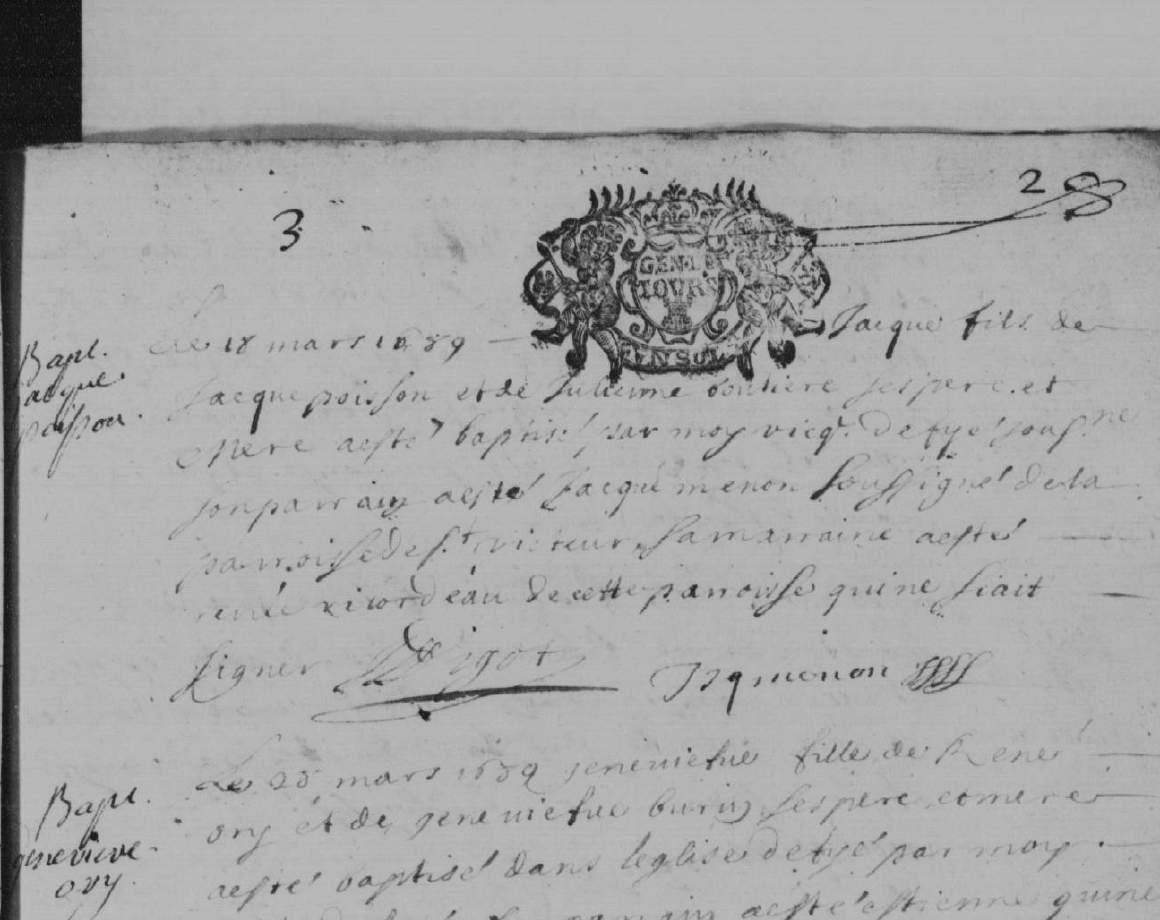 3
2
GEN.LE
TOURS
Bapt.
jacque
poisson.
Le 18 mars 1689 Jacque fils de
Jacque poisson et de Jullienne boutiere ses pere et
Mere aesté baptisé par moy vicq. de tyé sousne
son parrain aesté Jacque menon soussigné de la
parroisse de St victeur, sa marraine aesté
renée ricordeau de cette parroisse qui ne sçait
signer
Jaq menon
Bapt.
genevieve
ory.
Le 25 mars 1689 geneviefve fille de René
ory et de geneviefve burin ses pere et mere
aesté baptisé dans leglise de tyé par moy
parrain aesté estienne qui ne